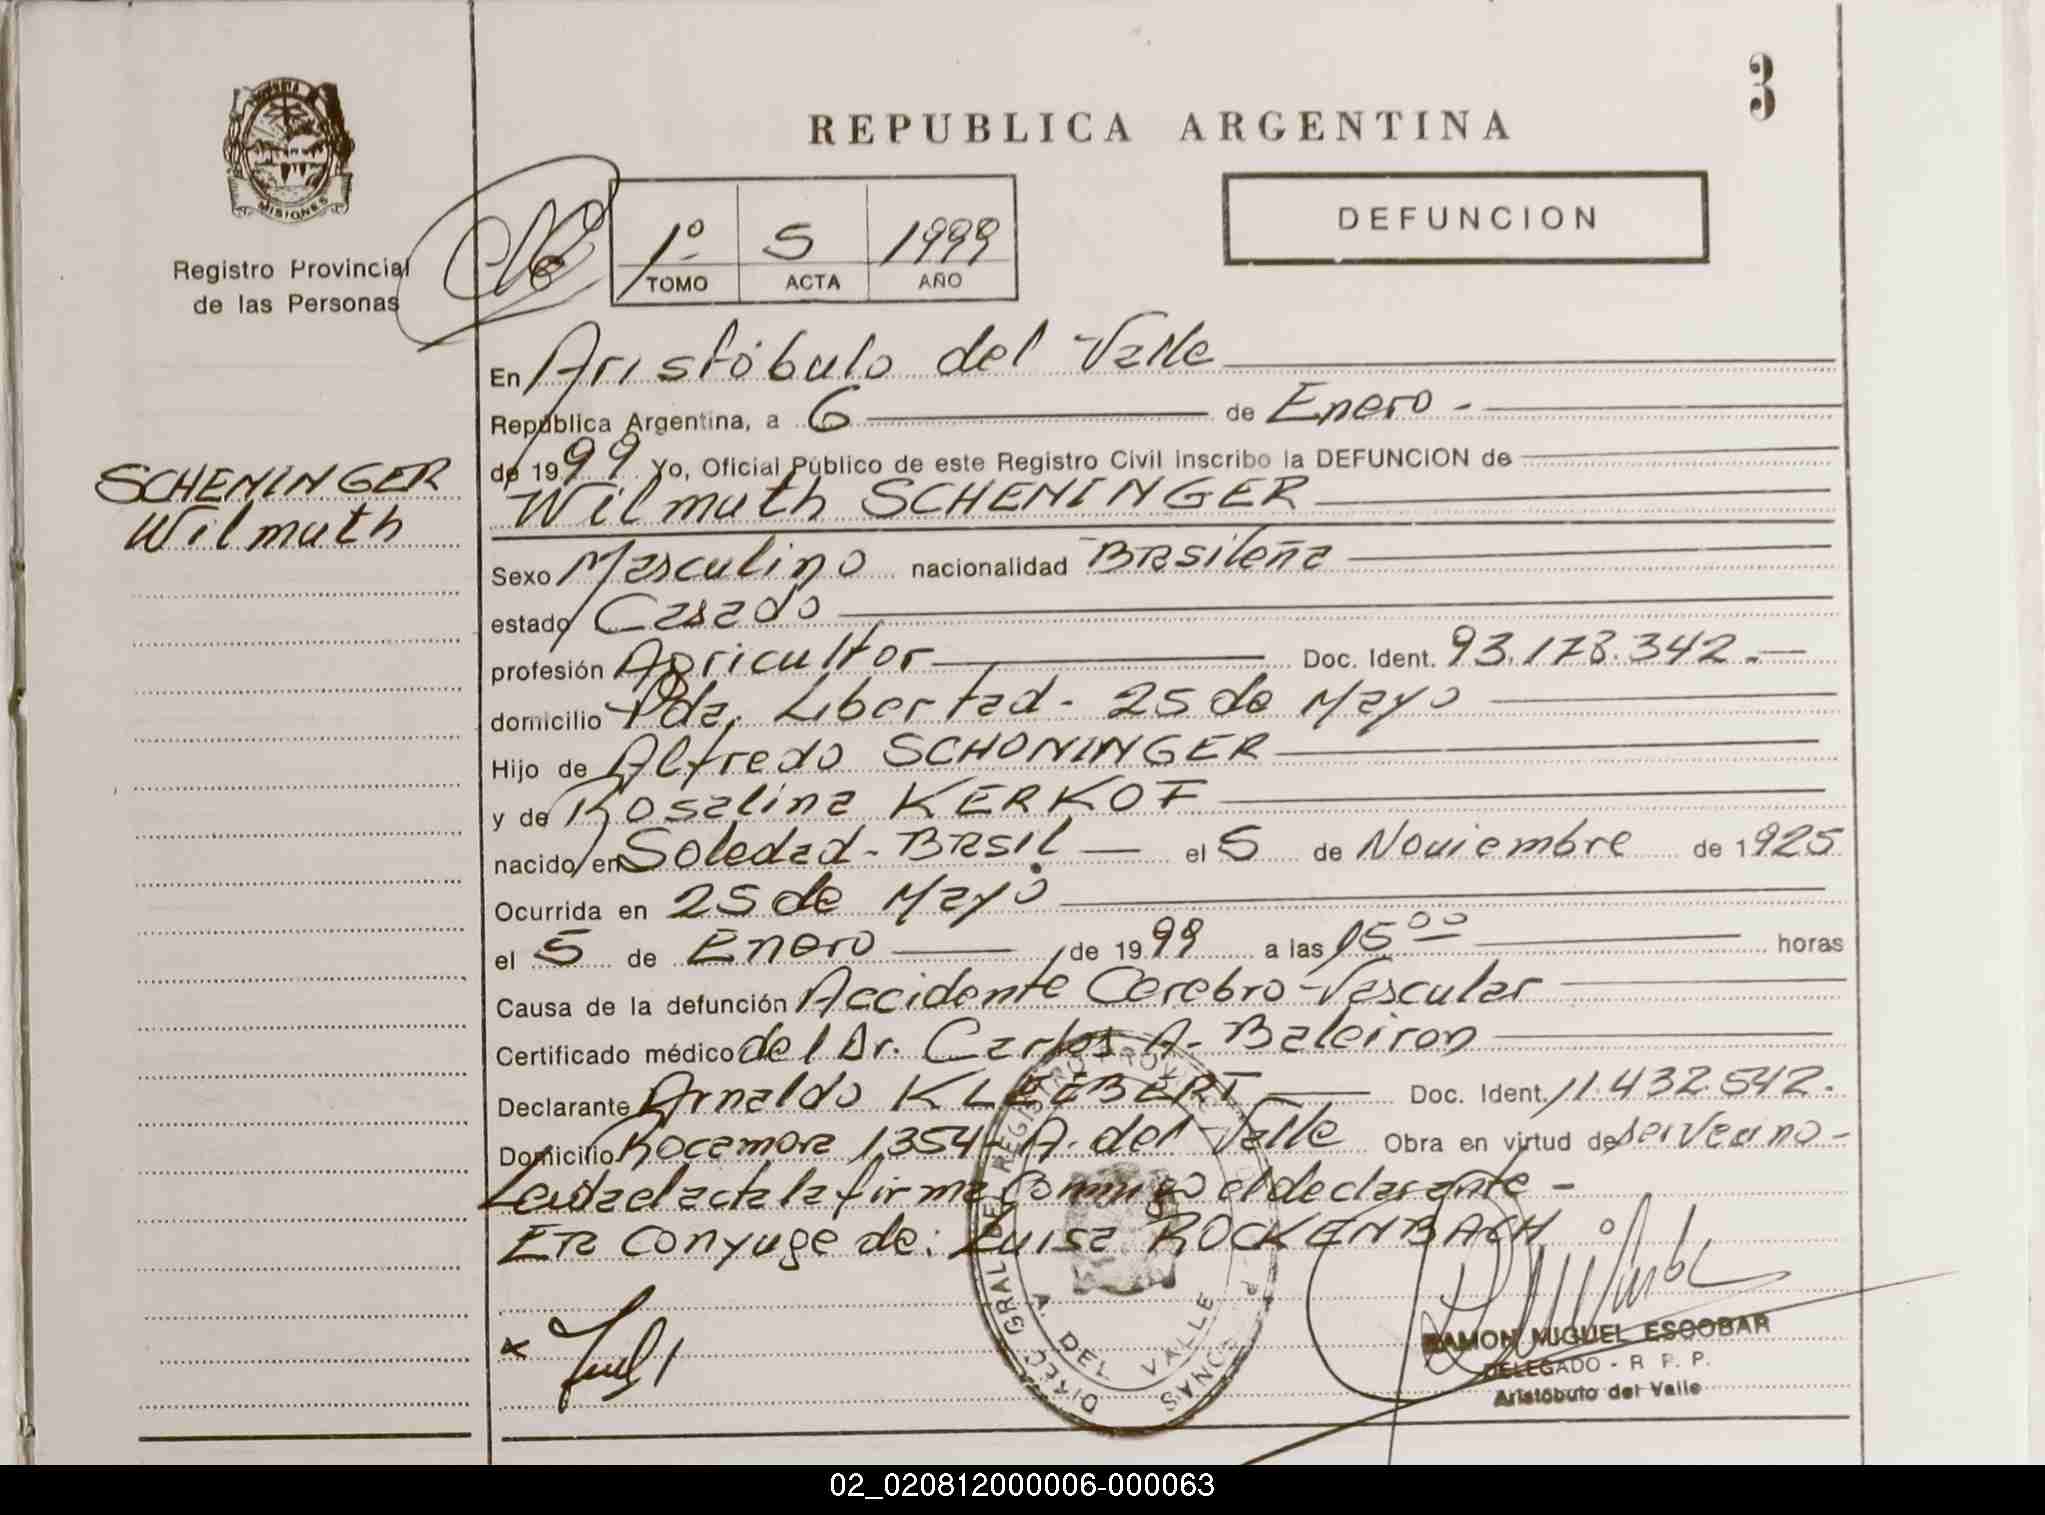 3
REPUBLICA ARGENTINA
MISIONES
Registro Provincial
de las Personas
1º 5 1999
TOMO ACTA AÑO
DEFUNCION
SCHENINGER
Wilmuth
En Aristóbulo del Valle
República Argentina, a 6 de Enero -
de 1999 Yo, Oficial Público de este Registro Civil inscribo la DEFUNCION de
Wilmuth SCHENINGER
Sexo Masculino nacionalidad Brasileña
estado Casado
profesión Agricultor Doc. Ident. 93.178.342.-
domicilio Pda. Libertad - 25 de Mayo
Hijo de Alfredo SCHONINGER
y de Rosalina KERKOF
nacido en Soledad - Brasil - el 5 de Noviembre de 1925
Ocurrida en 25 de Mayo
el 5 de Enero de 1999 a las 15⁰⁰ horas
Causa de la defunción Accidente Cerebro-Vascular
Certificado médico del Dr. Carlos A. Baleiron
Declarante Arnaldo KLEEBERT Doc. Ident. 11.432.542.
Domicilio Rocamora 1354 - A. del Valle Obra en virtud de ser Vecino -
Leida el acta la firma conmigo el declarante -
Era Conyuge de: Luisa ROCKENBACH
DIREC. GRAL. DEL REGISTRO
A. DEL VALLE
RAMON MIGUEL ESCOBAR
DELEGADO - R. P. P.
Aristóbulo del Valle
02_020812000006-000063